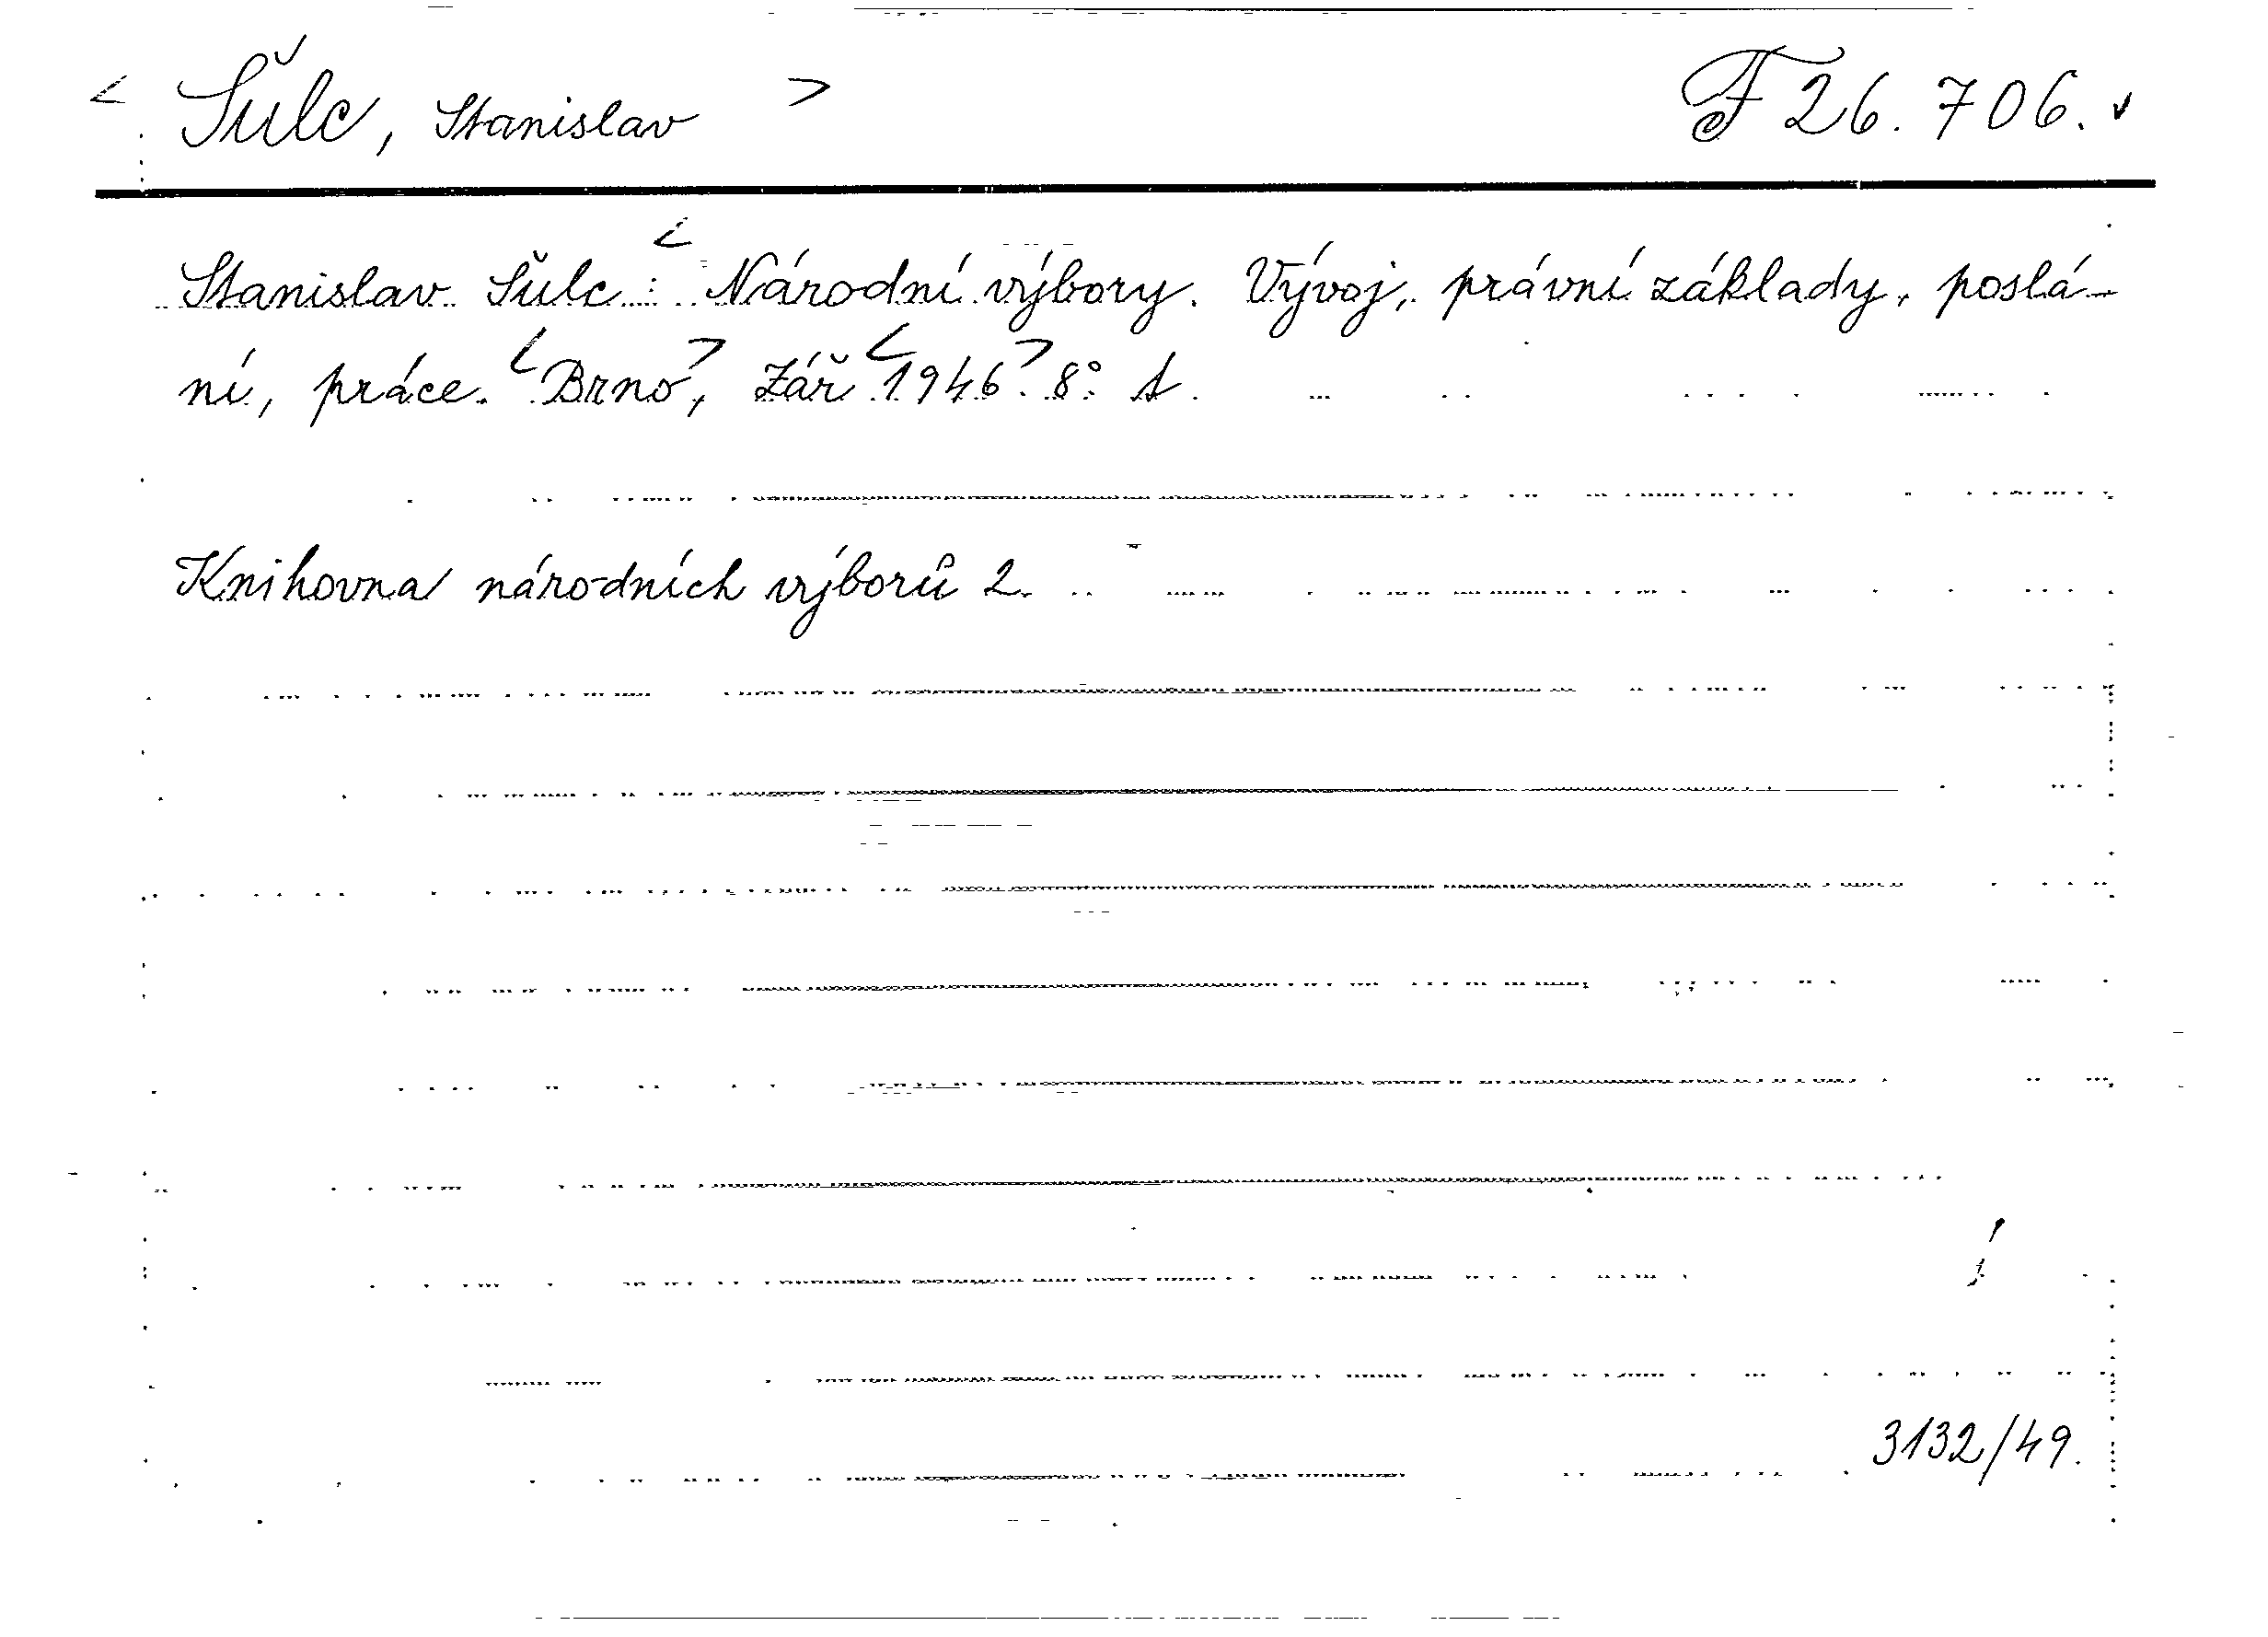 < Šulc, Stanislav > F 26.706.
Stanislav Šulc: < Národní výbory. Vývoj, právní základy, poslá-
ní, práce. < Brno >, Zář < 1946 >. 8° A.
Knihovna národních výborů 2.
3132/49.